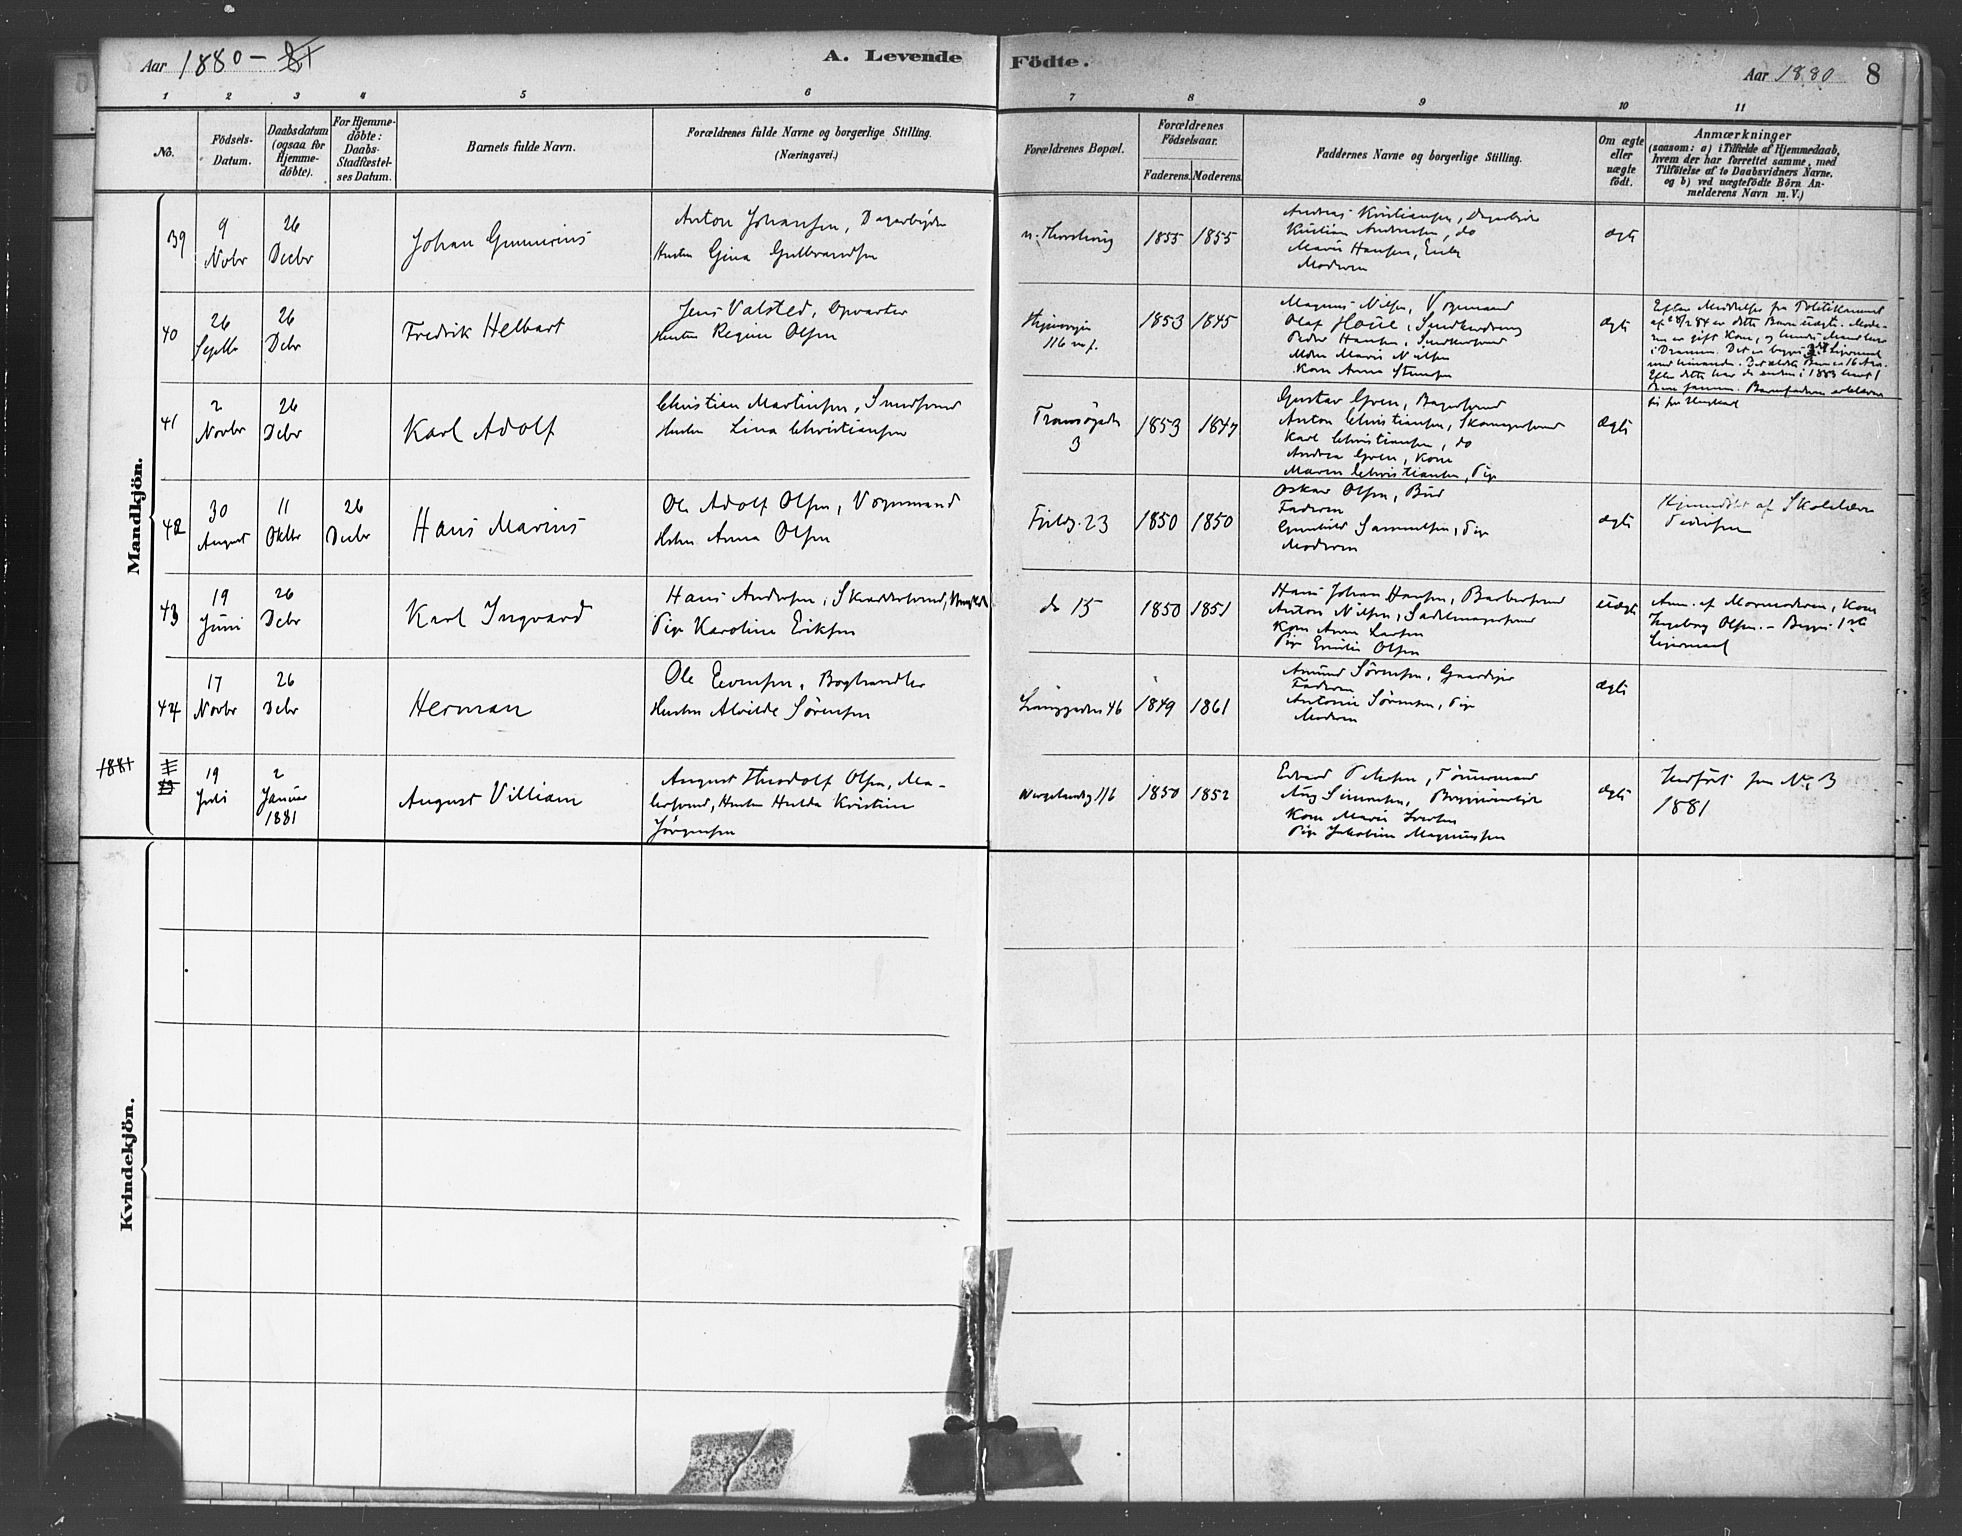 Aar 1880 – 81
A. Levende Födte.
Aar 1880
8
1 2 3 4 5 6 7 8 9 10 11
No.
Födsels-Datum.
Daabsdatum (ogsaa for Hjemme-döbte).
For Hjemme-döbte: Daabs-Stadfæstel-ses Datum.
Barnets fulde Navn.
Forældrenes fulde Navne og borgerlige Stilling.
(Næringsvei.)
Forældrenes Bopæl.
Forældrenes Födselsaar.
Faderens. Moderens.
Faddernes Navne og borgerlige Stilling.
Om ægte eller uægte födt.
Anmærkninger
(saasom: a) i Tilfælde af Hjemmedaab,
hvem der har forrettet samme, med
Tilföielse af to Daabsvidners Navne,
og b) ved uægtefödte Börn An-
melderens Navn m. V.)
Mandkjön.
39
9 Novbr
26 Decbr
Johan Gunnerius
Anton Johansen, Dagarbeider
Hustru Gina Gulbrandsen
1855 1855
Andreas Kristiansen, Dagarbeider
Kristian Andersen, do
Marie Hansen, Enke
Moderen
Ægte
40
26 Septbr
26 Debr
Fredrik Helbart
Jens Valsted, Opvarter
Hustru Regine Olsen
116
1853 1845
Magnus Nilsen, Vognmand
Olaf
Peder Hansen,
Marie Nilsen
Kone Anna
Ægte
Efter Meddelelse fra Politikammeret
er dette Barn uægte. Mode-
ren er gift Kone, og hendes Mand
i Drammen. Det er begges 3die Leiermaal
41
2 Novbr
26 Debr
Karl Adolf
Christian Martinsen,
Hustru Lina Christiansen
Tromsøgaden
3
1853 1847
Gustav Gren, Bagersvend
Anton Christiansen, Skomagersvend
Karl Christiansen, do
Andrea Gren, Kone
Maren Christiansen, Pige
Ægte
42
30 August
11 Oktbr
26 Decbr
Hans Marius
Ole Adolf Olsen, Vognmand
Hustru Anna Olsen
23
1850 1850
Oskar Olsen, Bud
Faderen
Gunhild Samuelsen, Pige
Moderen
Ægte
Hjemmedøbt af Skolelærer
Pedersen
43
19 Juni
26 Debr
Karl Ingvard
Hans Andersen, Skræddersvend, Ungkarl
Pige Karoline Eriksen
do 15
1850 1851
Hans Johan Hansen, Barbersvend
Anton Nilsen, Sadelmagersvend
Kone Anna Larsen
Pige Emilie Olsen
Uægte
Anm. af Mormoderen, Kone
Ingeborg Olsen. – Begges 1ste
Leiermaal
44
17 Novbr
26 Debr
Herman
Ole Evensen, Boghandler
Hustru Alvilde Sørensen
46
1849 1861
Amund Sørensen, Gaardeier
Faderen
Antonie Sørensen, Pige
Moderen
Ægte
1881
19 Juli
2 Januar 1881
August Villiam
August Theodolf Olsen, Ma-
lersvend, Hustru Hulda Kristine
Jørgensen
Wergelandsg 116
1850 1852
Edvard Petersen, Tømmermand
Aug Simonsen,
Kone Marie Iversen
Pige Jakobine Magnussen
Ægte
Indført fra No 3
1881
Kvindekjön.